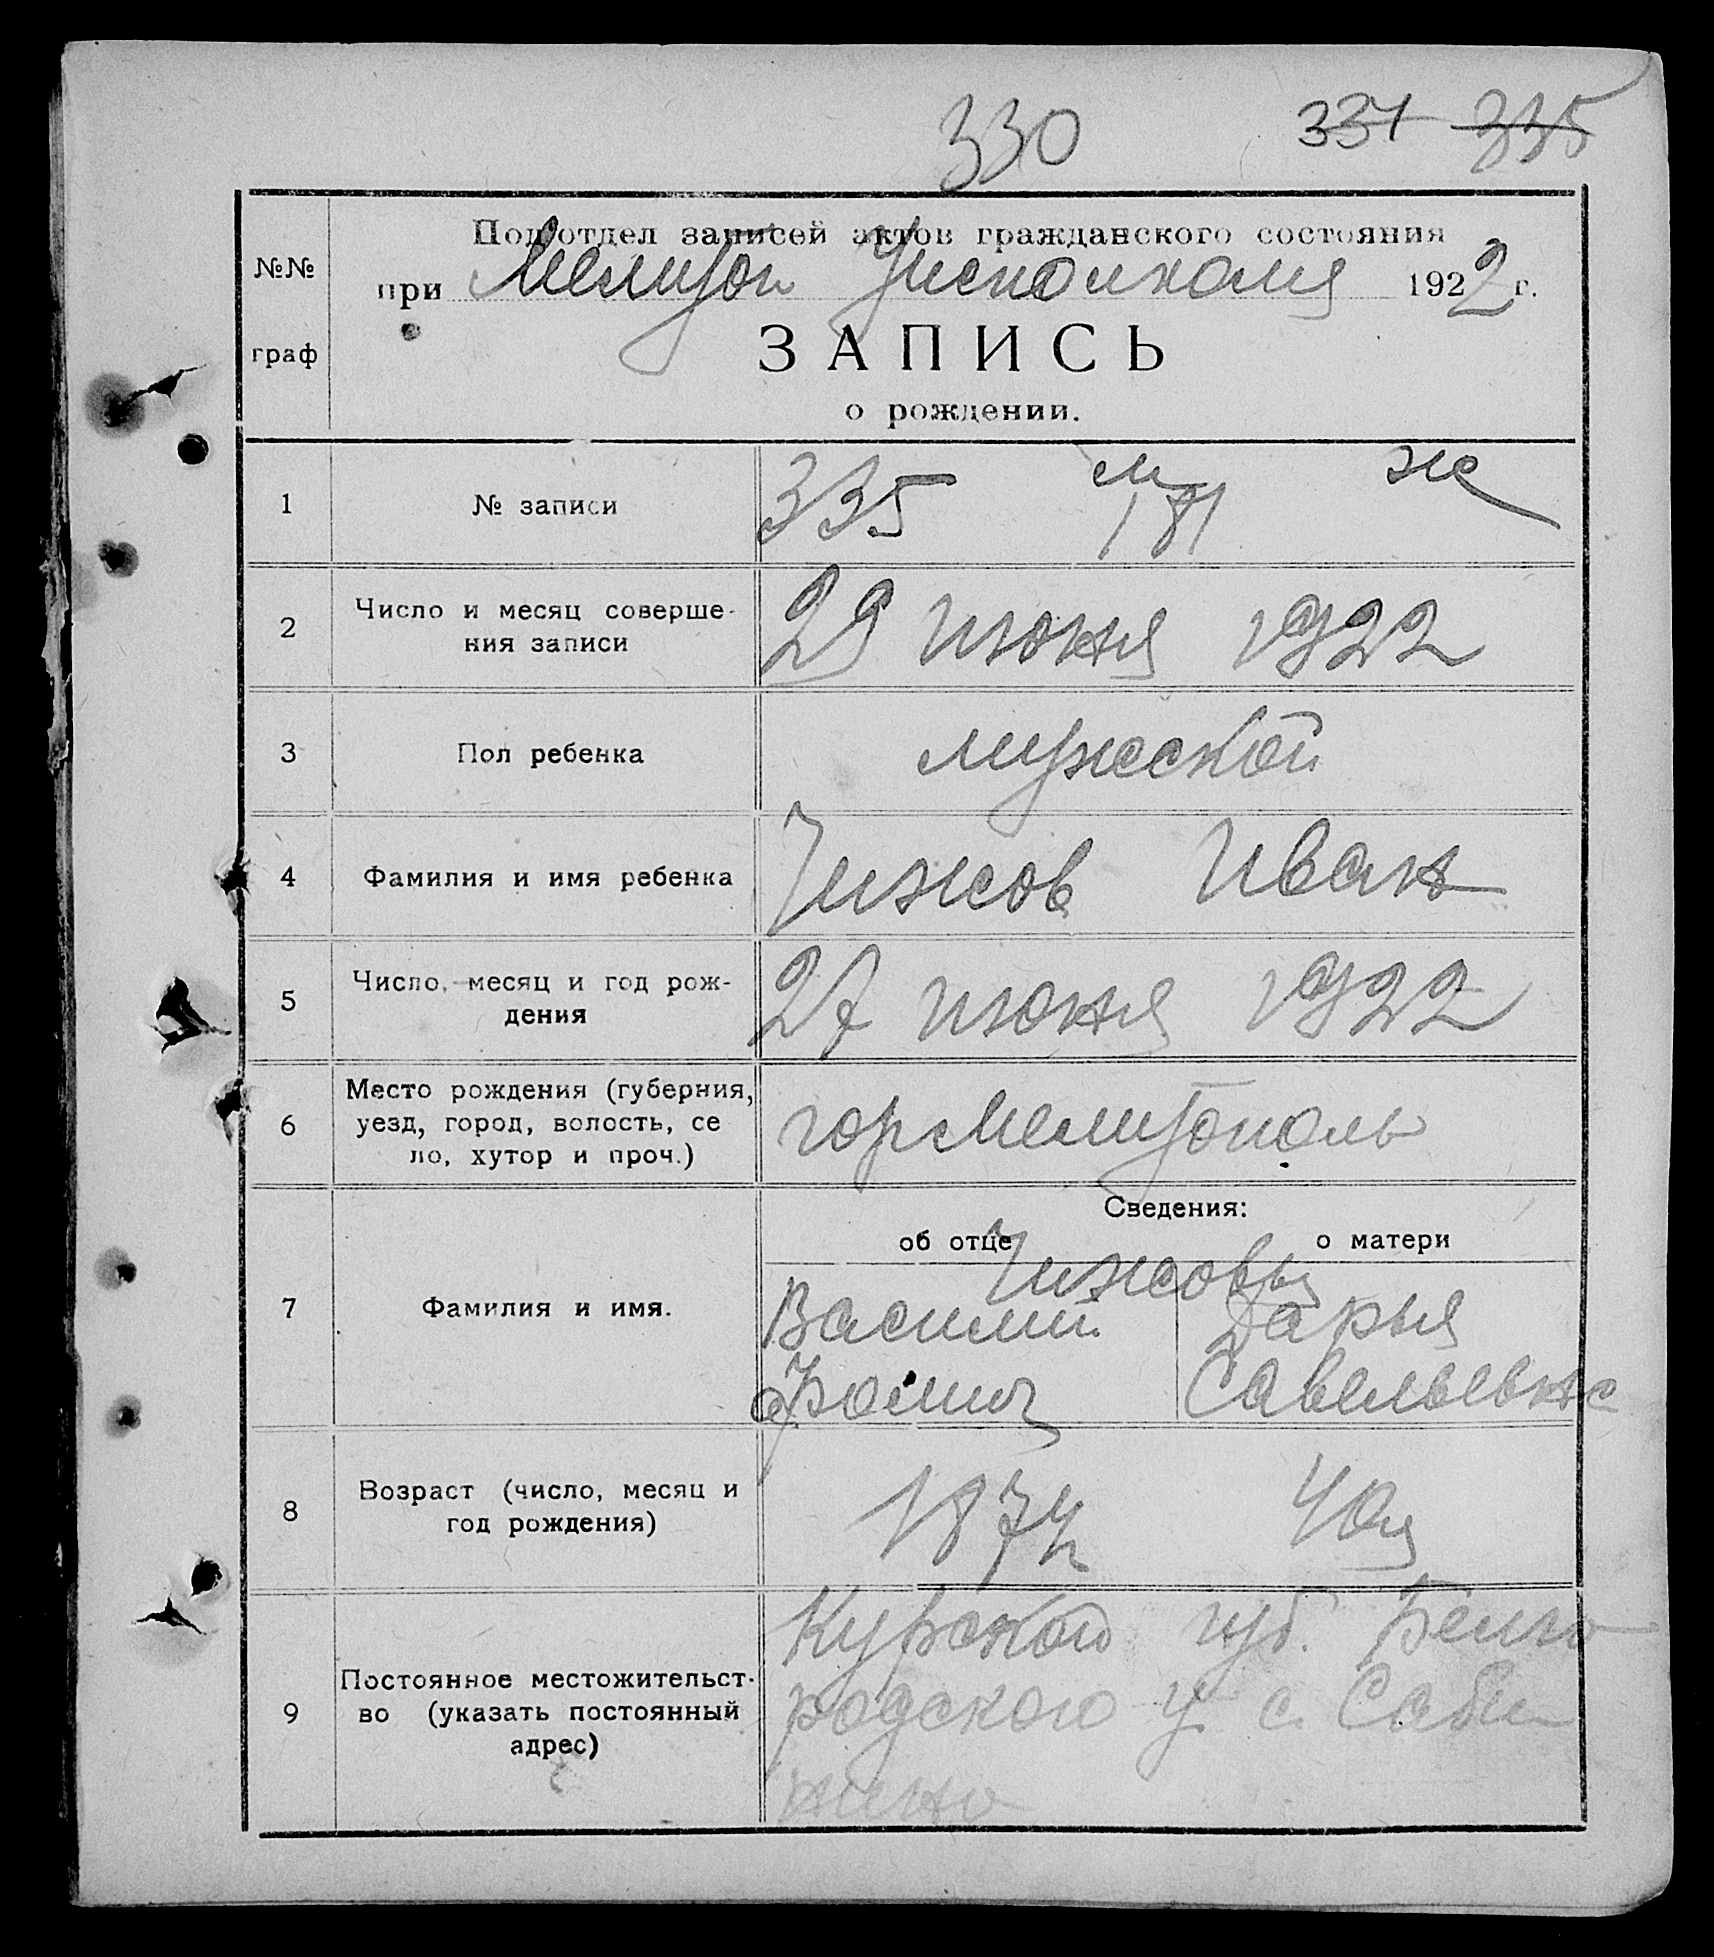 330 331 335
Подотдел записей актов гражданского состояния
№№
при Мелитоп Уисполкома 1922 г.
граф
ЗАПИСЬ
о рождении.
м ж
1 № записи 335 181
2 Число и месяц соверше-
ния записи
29 июня 1922
3 Пол ребенка мужской
4 Фамилия и имя ребенка Чижов Иван
5 Число, месяц и год рож-
дения
27 июня 1922
6 Место рождения (губерния,
уезд, город, волость, се
ло, хутор и проч.)
гор Мелитополь
Сведения:
об отце о матери
Чижовы
7 Фамилия и имя. Василий Дарья
Фомич Савельевна
8 Возраст (число, месяц и
год рождения)
1874 40л
9 Постоянное местожительст-
во (указать постоянный
адрес)
Курской губ. Белго
родского у с. Саби
нино